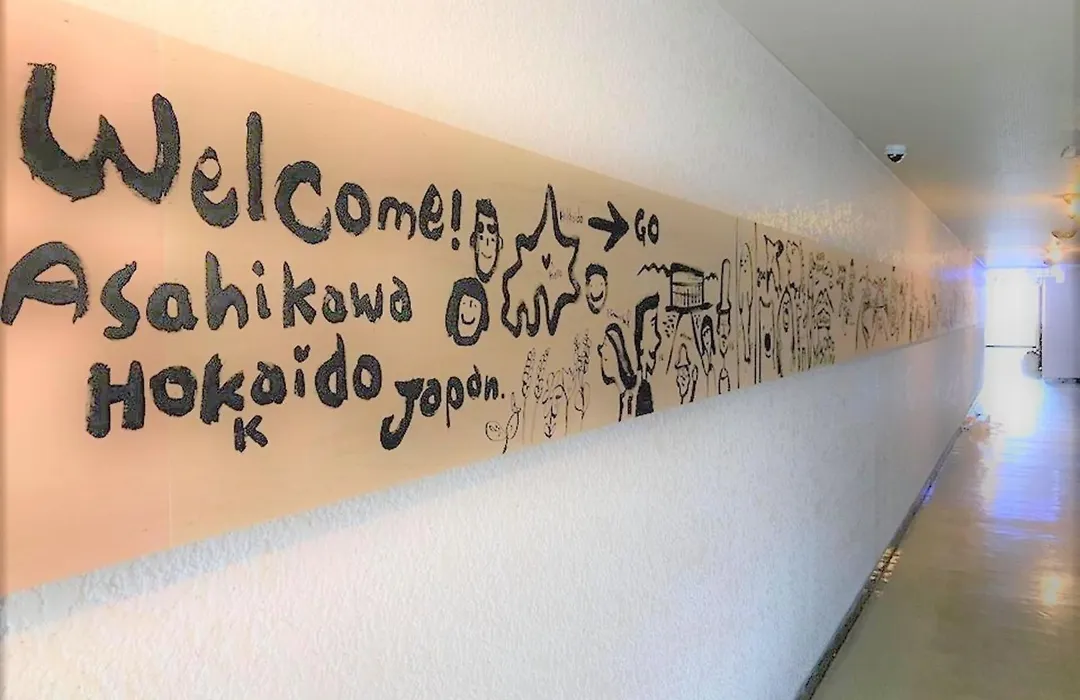 Welcome!
GO
Asahikawa
Hokaido Japan.
K